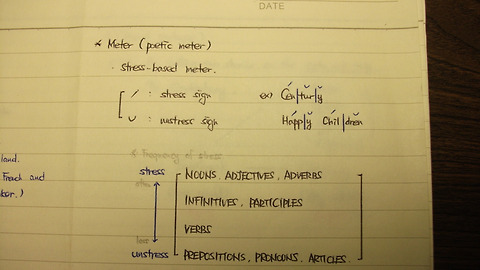 DATE
* Meter (poetic meter)
· stress-based meter.
/ : stress sign ex) Cén|tŭr|y̆
∪ : unstress sign Háp|py̆ Chíl|drĕn
land.
French and
* Frequency of stress
stress NOUNS, ADJECTIVES, ADVERBS
often
INFINITIVES, PARTICIPLES
VERBS
less
unstress PREPOSITIONS, PRONOUNS, ARTICLES.